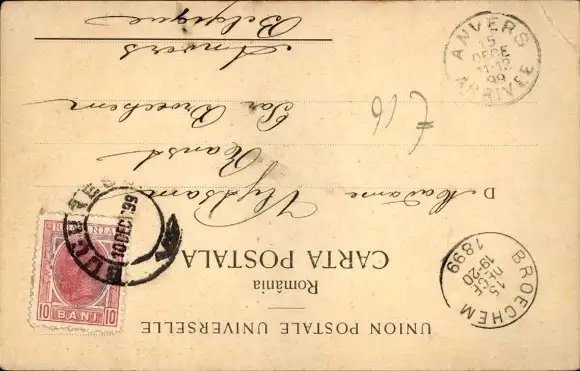 UNION POSTALE UNIVERSELLE
România
CARTA POSTALA
D Madame
Ranst
Par Broechem
Anvers
Belgique
ROMANIA
10 BANI 10
BUCURESCI
10 DEC 99
BROECHEM
15
DECE
19-20
1899
ANVERS
15
DECE
11-12
99
ARRIVÉE
€16